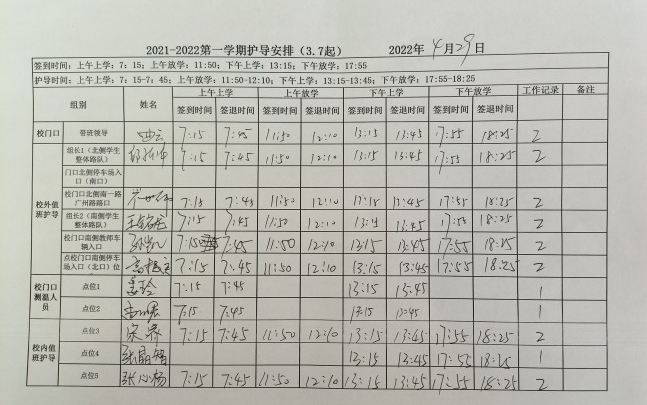 2021-2022第一学期护导安排（3.7起） 2022年 4月29日
签到时间：上午上学：7：15；上午放学：11:50；下午上学：13:15；下午放学：17:55
护导时间：上午上学：7:15-7：45；上午放学：11:50-12:10；下午上学：13:15-13:45；下午放学：17:55-18:25
组别 姓名 上午上学 上午放学 下午上学 下午放学 工作记录 备注
签到时间 签退时间 签到时间 签退时间 签到时间 签退时间 签到时间 签退时间
校门口 带班领导 7:15 7:45 11:50 12:10 13:15 13:45 17:55 18:25 2
校外值班护导
组长1（北侧学生整体路队） 7:15 7:45 11:50 12:10 13:15 13:45 17:55 18:25 2
门口北侧停车场入口（南口）
校门口北侧南一路广州路路口 7:15 7:45 11:50 12:10 13:15 13:45 17:55 18:25 2
组长2（南侧学生整体路队） 7:15 7:45 11:50 12:10 13:15 13:45 17:55 18:25 2
校门口南侧教师车辆入口 7:15 7:45 11:50 12:10 13:15 13:45 17:55 18:25 2
点校门口南侧停车场入口（北口）位 7:15 7:45 11:50 12:10 13:15 13:45 17:55 18:25 2
校门口测温人员
点位1 7:15 7:45 13:15 13:45 1
点位2 7:15 7:45 13:15 13:45 1
校内值班护导
点位3 宋春 7:15 7:45 11:50 12:10 13:15 13:45 17:55 18:25 2
点位4 13:15 13:45 17:55 18:25 1
点位5 张心杨 7:15 7:45 11:50 12:10 13:15 13:45 17:55 18:25 2